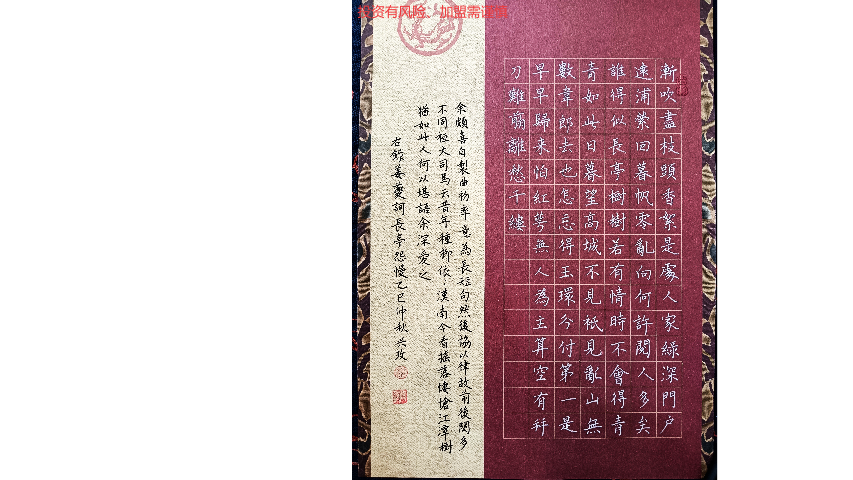 投资有风险、加盟需谨慎
漸吹盡枝頭香絮是處人家綠深門戶
遠浦縈回暮帆零亂向何許閱人多矣
誰得似長亭樹樹若有情時不會得青
青如此日暮望高城不見祇見亂山無
數韋郎去也怎忘得玉環分付第一是
早早歸來怕紅萼無人為主算空有并
刀難翦離愁千縷
余頗喜自製曲初率意為長短句然後協以律故前後闋多
不同桓大司馬云昔年種柳依、漢南今看搖落悽愴江潭樹
猶如此人何以堪語余深愛之
右錄姜夔詞長亭怨慢乙巳仲秋兴玫